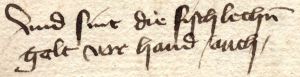 Vnd sint die fischlechn
gelt vor hand auch